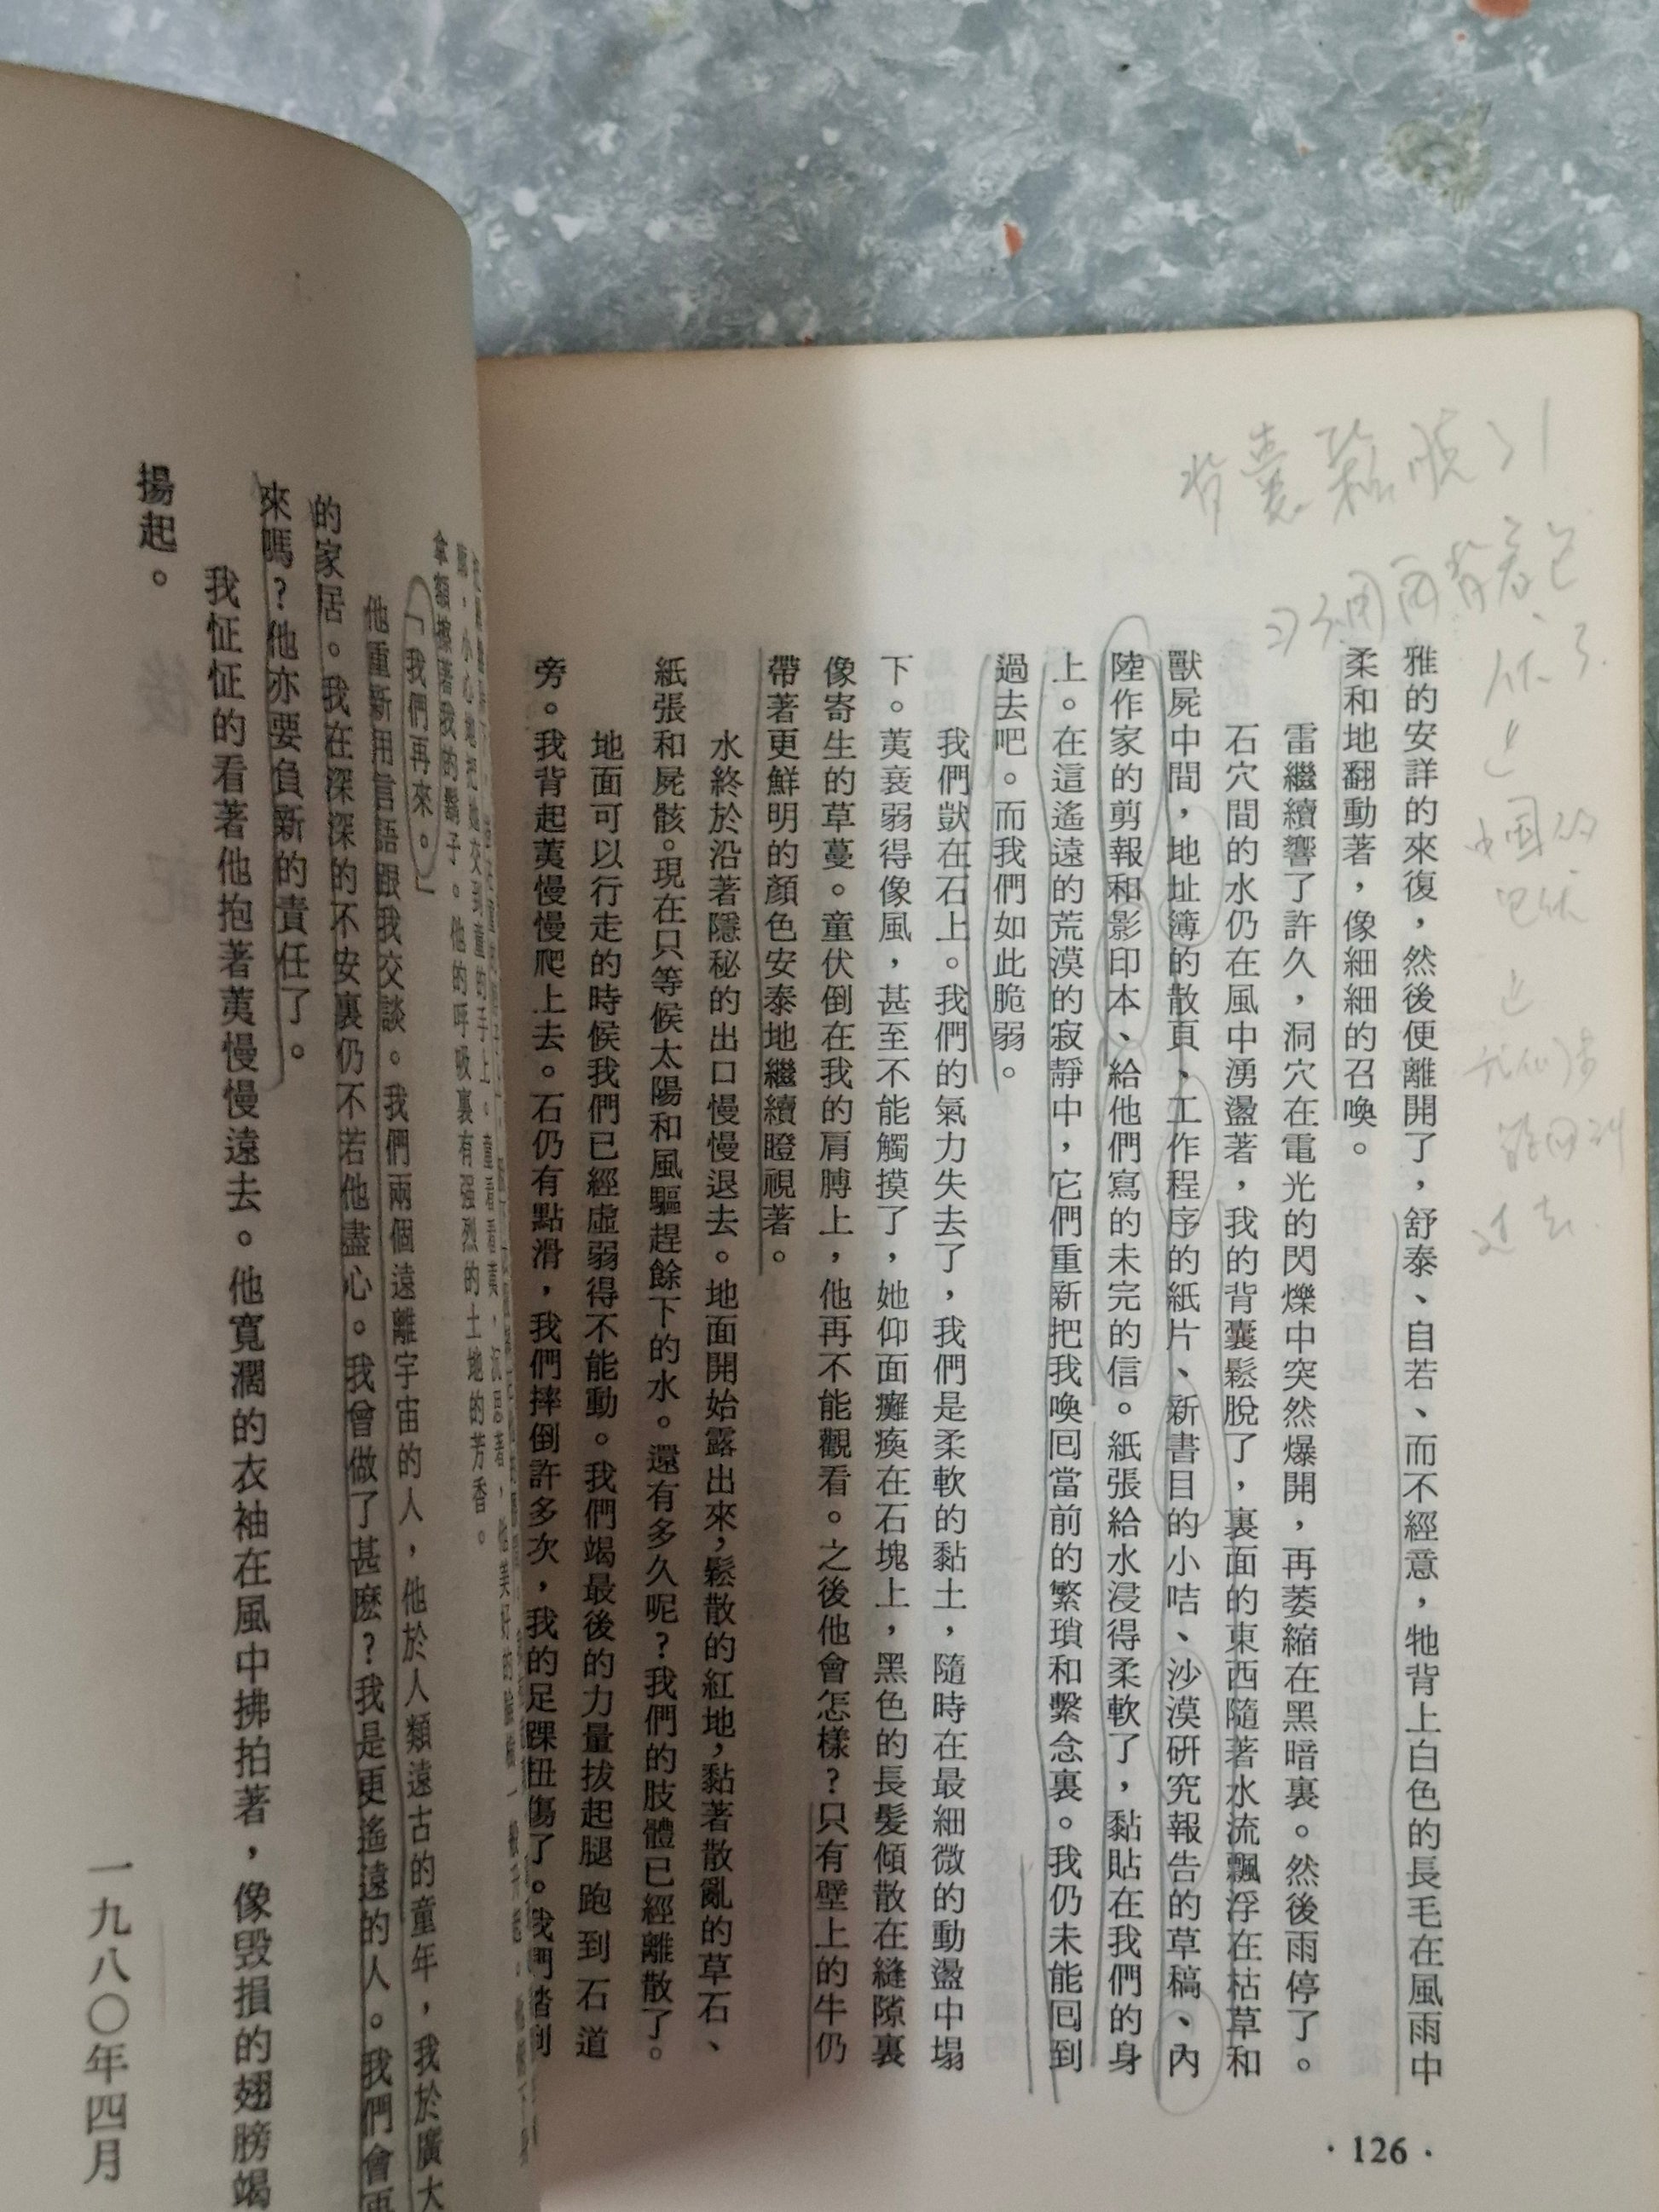 雅的安詳的來復，然後便離開了，舒泰、自若、而不經意，牠背上白色的長毛在風雨中
柔和地翻動著，像細細的召喚。
雷繼續響了許久，洞穴在電光的閃爍中突然爆開，再萎縮在黑暗裏。然後雨停了。
石穴間的水仍在風中湧盪著，我的背囊鬆脫了，裏面的東西隨著水流飄浮在枯草和
獸屍中間，地址簿的散頁、工作程序的紙片、新書目的小咭、沙漠研究報告的草稿、內
陸作家的剪報和影印本、給他們寫的未完的信。紙張給水浸得柔軟了，黏貼在我們的身
上。在這遙遠的荒漠的寂靜中，它們重新把我喚囘當前的繁瑣和繫念裏。我仍未能囘到
過去吧。而我們如此脆弱。
我們獃在石上。我們的氣力失去了，我們是柔軟的黏土，隨時在最細微的動盪中塌
下。荑衰弱得像風，甚至不能觸摸了，她仰面癱瘓在石塊上，黑色的長髮傾散在縫隙裏
像寄生的草蔓。童伏倒在我的肩膊上，他再不能觀看。之後他會怎樣？只有壁上的牛仍
帶著更鮮明的顏色安泰地繼續瞪視著。
水終於沿著隱秘的出口慢慢退去。地面開始露出來，鬆散的紅地，黏著散亂的草石、
紙張和屍骸。現在只等候太陽和風驅趕餘下的水。還有多久呢？我們的肢體已經離散了。
地面可以行走的時候我們已經虛弱得不能動。我們竭最後的力量拔起腿跑到石道
旁。我背起荑慢慢爬上去。石仍有點滑，我們摔倒許多次，我的足踝扭傷了。我們踏到
· 126 ·
背囊鬆脫了！
中國的
過去.
，小心地把她交到童的手上。童看看荑，沉思著，
拿額擦著我的鬍子。他的呼吸裏有强烈的土地的芳香。
「我們再來。」
他重新用言語跟我交談。我們兩個遠離宇宙的人，他於人類遠古的童年，我於廣大
的家居。我在深深的不安裏仍不若他盡心。我曾做了甚麽？我是更遙遠的人。我們會再
來嗎？他亦要負新的責任了。
我怔怔的看著他抱著荑慢慢遠去。他寬濶的衣袖在風中拂拍著，像毀損的翅膀竭
揚起。
一九八〇年四月